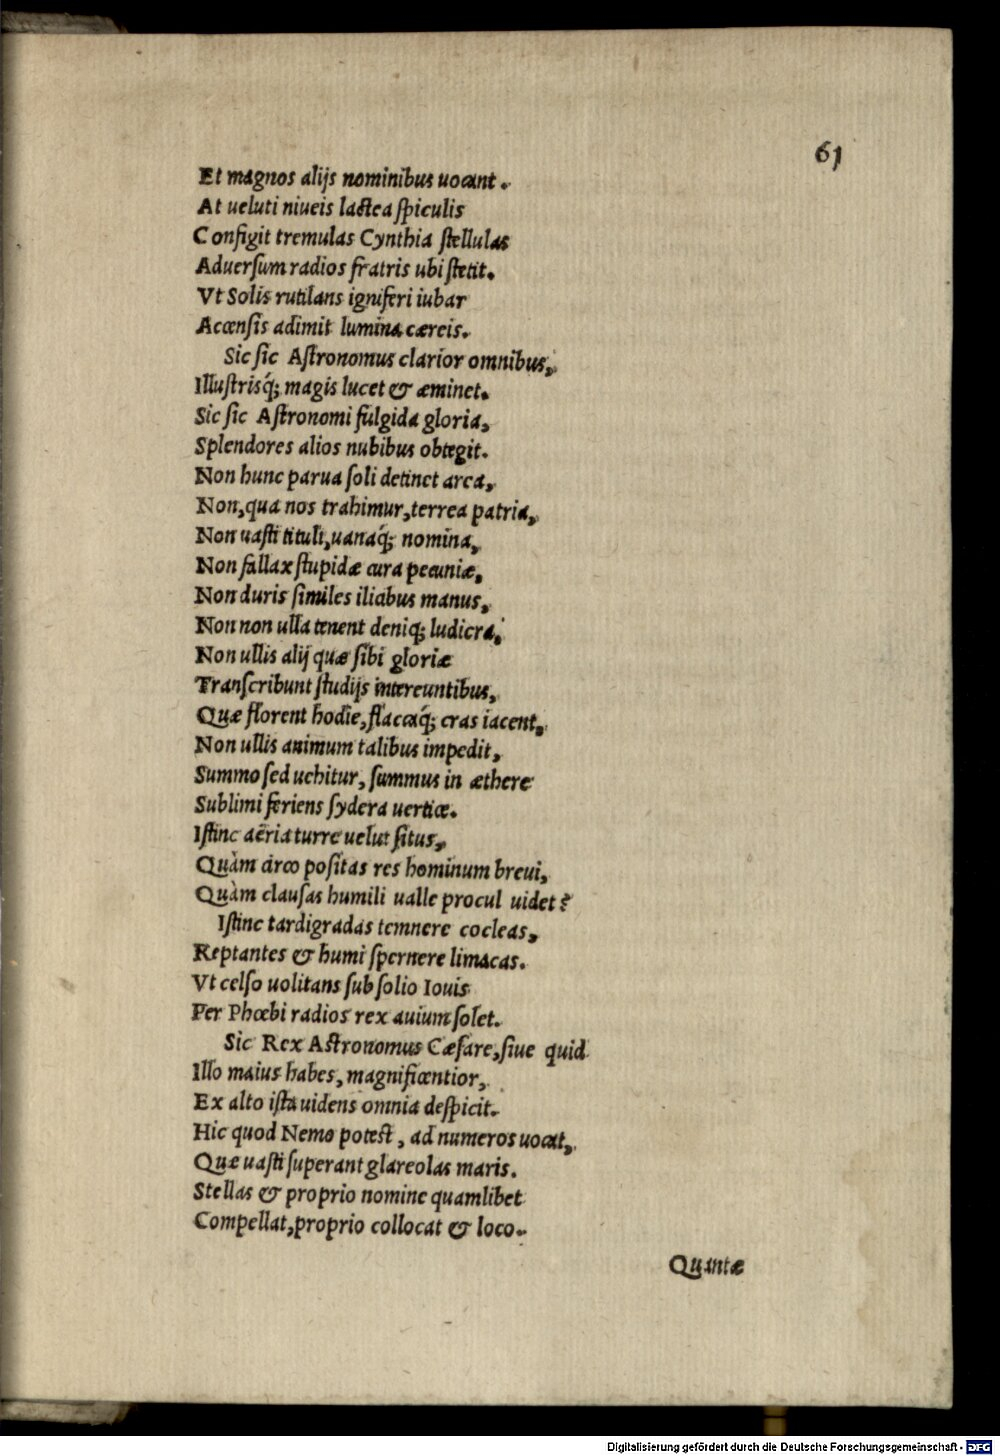 61
Et magnos alijs nominibus uocant.
At ueluti niueis lactea ſpiculis
Configit tremulas Cynthia ſtellulas
Aduerſum radios fratris ubi ſtetit.
Vt Solis rutilans igniferi iubar
Accenſis adimit lumina cæreis.
Sic ſic Aſtronomus clarior omnibus,
Illuſtrisq́; magis lucet & æminet.
Sic ſic Aſtronomi fulgida gloria,
Splendores alios nubibus obtegit.
Non hunc parua ſoli detinet arca,
Non, qua nos trahimur, terrea patria,
Non uaſti tituli, uanaq́; nomina,
Non fallax ſtupidæ cura pecuniæ,
Non duris ſimiles iliabus manus,
Non non ulla tenent deniq; ludicra,
Non ullis alij quæ ſibi gloriæ
Tranſcribunt ſtudijs intereuntibus,
Quæ florent hodie, flaccaq́; cras iacent,
Non ullis animum talibus impedit,
Summo ſed uehitur, ſummus in æthere
Sublimi feriens ſydera uertice.
Iſtinc aëria turre uelut ſitus,
Quàm arco poſitas res hominum breui,
Quàm clauſas humili ualle procul uidet?
Iſtinc tardigradas temnere cocleas,
Reptantes & humi ſpernere limacas.
Vt celſo uolitans ſub ſolio Iouis
Per Phœbi radios rex auium ſolet.
Sic Rex Aſtronomus Cæſare, ſiue quid
Illo maius habes, magnificentior,
Ex alto iſta uidens omnia deſpicit.
Hic quod Nemo poteſt, ad numeros uocat,
Quæ uaſti ſuperant glareolas maris.
Stellas & proprio nomine quamlibet
Compellat, proprio collocat & loco.
Quantæ
Digitalisierung gefördert durch die Deutsche Forschungsgemeinschaft - DFG